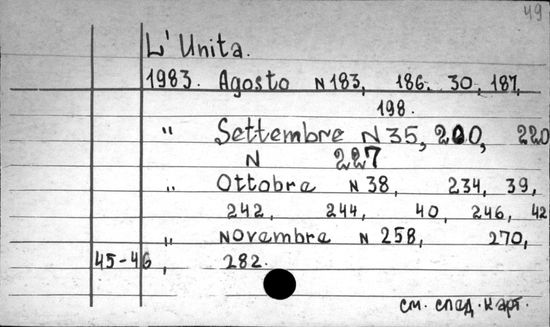 49
L'Unita.
1983. Agosto N 183, 186. 30, 187,
198.
" Settembre N 35, 200, 220
N 227
" Ottobre N 38, 234, 39,
242, 244, 40, 246, 42
" Novembre N 258, 270,
45-46, 282.
см. след. карт.